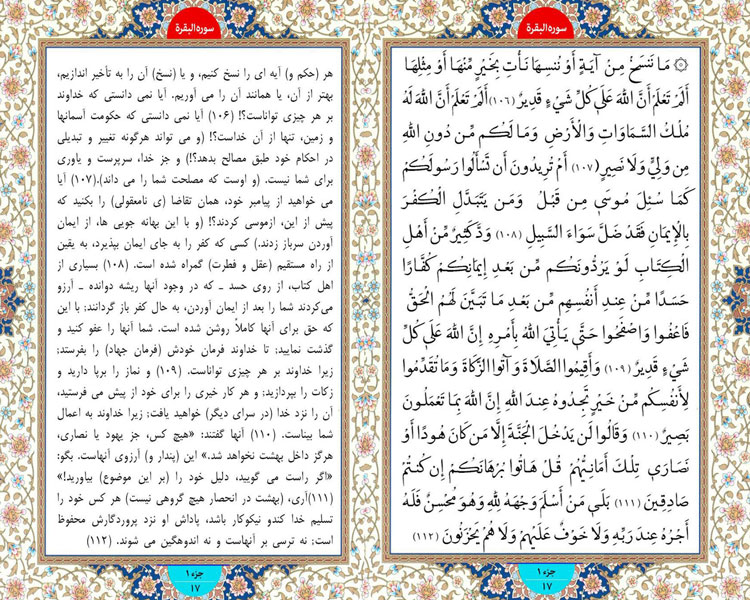 سورة البقرة
۞ مَا نَنسَخْ مِنْ آيَةٍ أَوْ نُنسِهَا نَأْتِ بِخَيْرٍ مِّنْهَا أَوْ مِثْلِهَا
أَلَمْ تَعْلَمْ أَنَّ اللَّهَ عَلَىٰ كُلِّ شَيْءٍ قَدِيرٌ (۱۰۶) أَلَمْ تَعْلَمْ أَنَّ اللَّهَ لَهُ
مُلْكُ السَّمَاوَاتِ وَالْأَرْضِ وَمَا لَكُم مِّن دُونِ اللَّهِ
مِن وَلِيٍّ وَلَا نَصِيرٍ (۱۰۷) أَمْ تُرِيدُونَ أَن تَسْأَلُوا رَسُولَكُمْ
كَمَا سُئِلَ مُوسَىٰ مِن قَبْلُ وَمَن يَتَبَدَّلِ الْكُفْرَ
بِالْإِيمَانِ فَقَدْ ضَلَّ سَوَاءَ السَّبِيلِ (۱۰۸) وَدَّ كَثِيرٌ مِّنْ أَهْلِ
الْكِتَابِ لَوْ يَرُدُّونَكُم مِّن بَعْدِ إِيمَانِكُمْ كُفَّارًا
حَسَدًا مِّنْ عِندِ أَنفُسِهِم مِّن بَعْدِ مَا تَبَيَّنَ لَهُمُ الْحَقُّ
فَاعْفُوا وَاصْفَحُوا حَتَّىٰ يَأْتِيَ اللَّهُ بِأَمْرِهِ إِنَّ اللَّهَ عَلَىٰ كُلِّ
شَيْءٍ قَدِيرٌ (۱۰۹) وَأَقِيمُوا الصَّلَاةَ وَآتُوا الزَّكَاةَ وَمَا تُقَدِّمُوا
لِأَنفُسِكُم مِّنْ خَيْرٍ تَجِدُوهُ عِندَ اللَّهِ إِنَّ اللَّهَ بِمَا تَعْمَلُونَ
بَصِيرٌ (۱۱۰) وَقَالُوا لَن يَدْخُلَ الْجَنَّةَ إِلَّا مَن كَانَ هُودًا أَوْ
نَصَارَىٰ تِلْكَ أَمَانِيُّهُمْ قُلْ هَاتُوا بُرْهَانَكُمْ إِن كُنتُمْ
صَادِقِينَ (۱۱۱) بَلَىٰ مَنْ أَسْلَمَ وَجْهَهُ لِلَّهِ وَهُوَ مُحْسِنٌ فَلَهُ
أَجْرُهُ عِندَ رَبِّهِ وَلَا خَوْفٌ عَلَيْهِمْ وَلَا هُمْ يَحْزَنُونَ (۱۱۲)
جزء ۱
۱۷
سورة البقرة
هر (حکم و) آیه ای را نسخ کنیم، و یا (نسخ) آن را به تأخیر اندازیم،
بهتر از آن، یا همانند آن را می آوریم. آیا نمی دانستی که خداوند
بر هر چیزی تواناست؟! (۱۰۶) آیا نمی دانستی که حکومت آسمانها
و زمین، تنها از آن خداست؟! (و می تواند هرگونه تغییر و تبدیلی
در احکام خود طبق مصالح بدهد؟!) و جز خدا، سرپرست و یاوری
برای شما نیست. (و اوست که مصلحت شما را می داند).(۱۰۷) آیا
می خواهید از پیامبر خود، همان تقاضا (ی نامعقولی) را بکنید که
پیش از این، ازموسی کردند؟! (و با این بهانه جویی ها، از ایمان
آوردن سرباز زدند.) کسی که کفر را به جای ایمان بپذیرد، به یقین
از راه مستقیم (عقل و فطرت) گمراه شده است. (۱۰۸) بسیاری از
اهل کتاب، از روی حسد ـ که در وجود آنها ریشه دوانده ـ آرزو
می‌کردند شما را بعد از ایمان آوردن، به حال کفر باز گردانند; با این
که حق برای آنها کاملاً روشن شده است. شما آنها را عفو کنید و
گذشت نمایید; تا خداوند فرمان خودش (فرمان جهاد) را بفرستد;
زیرا خداوند بر هر چیزی تواناست. (۱۰۹) و نماز را برپا دارید و
زکات را بپردازید; و هر کار خیری را برای خود از پیش می فرستید،
آن را نزد خدا (در سرای دیگر) خواهید یافت; زیرا خداوند به اعمال
شما بیناست. (۱۱۰) آنها گفتند: «هیچ کس، جز یهود یا نصاری،
هرگز داخل بهشت نخواهد شد.» این (پندار و) آرزوی آنهاست. بگو:
«اگر راست می گویید، دلیل خود را (بر این موضوع) بیاورید!»
(۱۱۱)آری، (بهشت در انحصار هیچ گروهی نیست) هر کس خود را
تسلیم خدا کندو نیکوکار باشد، پاداش او نزد پروردگارش محفوظ
است; نه ترسی بر آنهاست و نه اندوهگین می شوند. (۱۱۲)
جزء ۱
۱۷